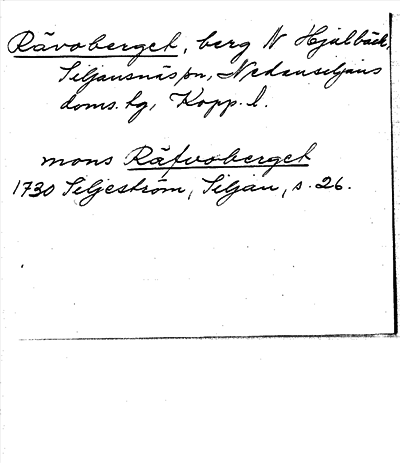 Rävoberget, berg N Hjälbäck,
Siljansnäs sn, Nedansiljans
doms. tg, Kopp. l.
mons Räfvoberget
1730 Siljeström, Siljan, s. 26.